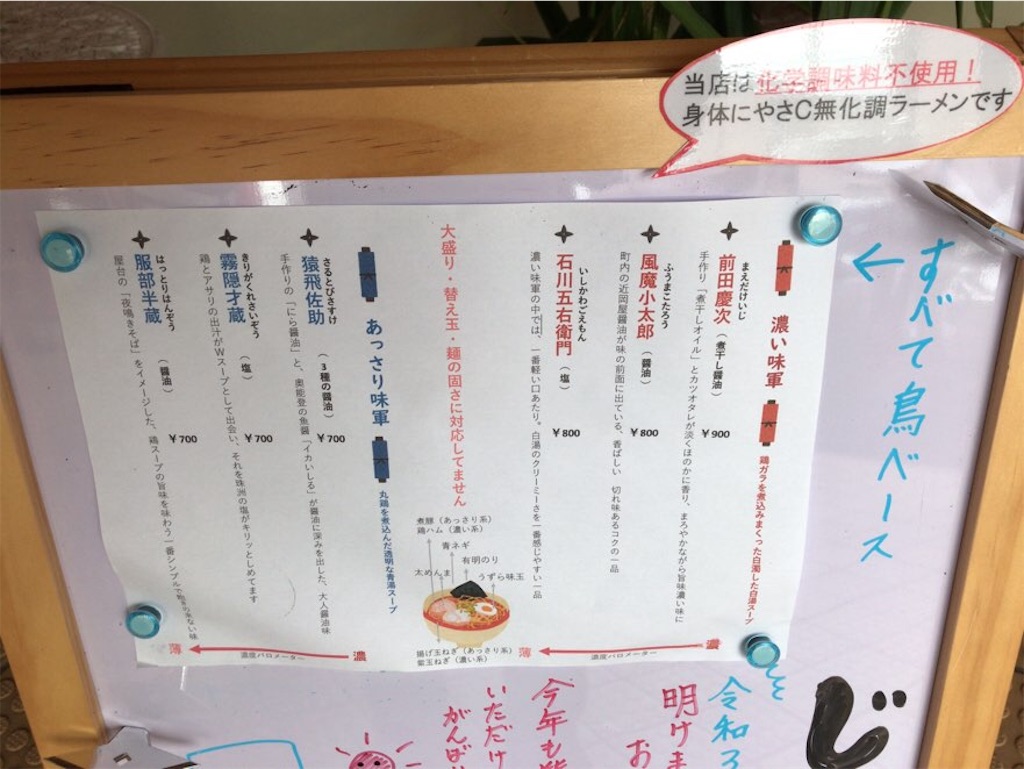 当店は化学調味料不使用！
身体にやさC無化調ラーメンです
すべて鳥ベース
濃い味軍
鶏ガラを煮込みまくった白濁した白湯スープ
まえだけいじ
前田慶次（煮干し醤油）
¥900
手作り「煮干しオイル」とカツオタレが淡くほのかに香り、まろやかながら旨味濃い味に
ふうまこたろう
風魔小太郎（醤油）
¥800
町内の近岡屋醤油が味の前面に出ている、香ばしい 切れ味あるコクの一品
いしかわごえもん
石川五右衛門（塩）
¥800
濃い味軍の中では、一番軽い口あたり。白湯のクリーミーさを一番感じやすい一品
大盛り・替え玉・麺の固さに対応してません
煮豚（あっさり系）
鶏ハム（濃い系）
青ネギ
有明のり
太めんま
うずら味玉
揚げ玉ねぎ（あっさり系）
紫玉ねぎ（濃い系）
薄
濃度バロメーター
濃
あっさり味軍
丸鶏を煮込んだ透明な青湯スープ
さるとびさすけ
猿飛佐助（3種の醤油）
¥700
手作りの「にら醤油」と、奥能登の魚醤「イカいしる」が醤油に深みを出した、大人醤油味
きりがくれさいぞう
霧隠才蔵（塩）
¥700
鶏とアサリの出汁がWスープとして出会い、それを珠洲の塩がキリッとしめてます
はっとりはんぞう
服部半蔵（醤油）
¥700
屋台の「夜鳴きそば」をイメージした、鶏スープの旨味を味わう一番シンプルで飽きの来ない味
薄
濃度バロメーター
濃
じ
令和3
明けま
お
今年も
いただけ
がんば